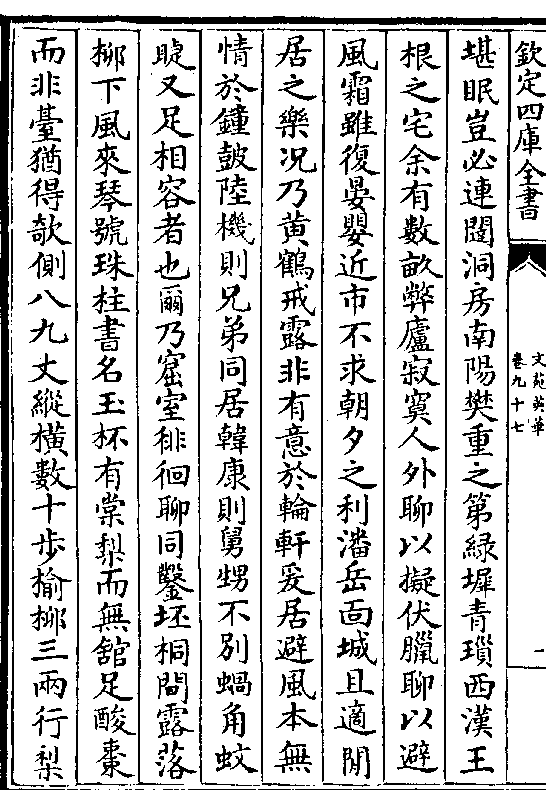 欽定四庫全書
文苑英華
卷九十七
一
堪眠豈必連闥洞房南陽樊重之第綠墀青瑣西漢王
根之宅余有數畝弊廬寂寞人外聊以擬伏臘聊以避
風霜雖復晏嬰近市不求朝夕之利潘岳面城且適閒
居之樂况乃黄鶴戒露非有意於輪軒爰居避風本無
情於鐘鼓陸機則兄弟同居韓康則舅甥不別蝸角蚊
睫又足相容者也爾乃窟室徘徊聊同鑿坯桐間露落
栁下風來琴號珠柱書名玉杯有棠梨而無館足酸棗
而非臺猶得欹側八九丈縱橫數十步榆栁三兩行梨